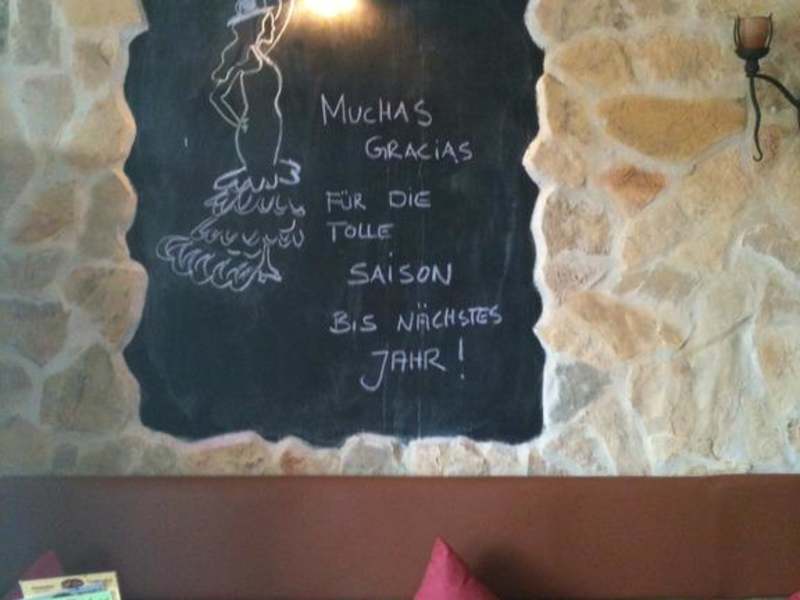 MUCHAS
GRACiAS
FÜR DIE
TOLLE
SAiSON
BiS NÄCHSTES
JAHR!